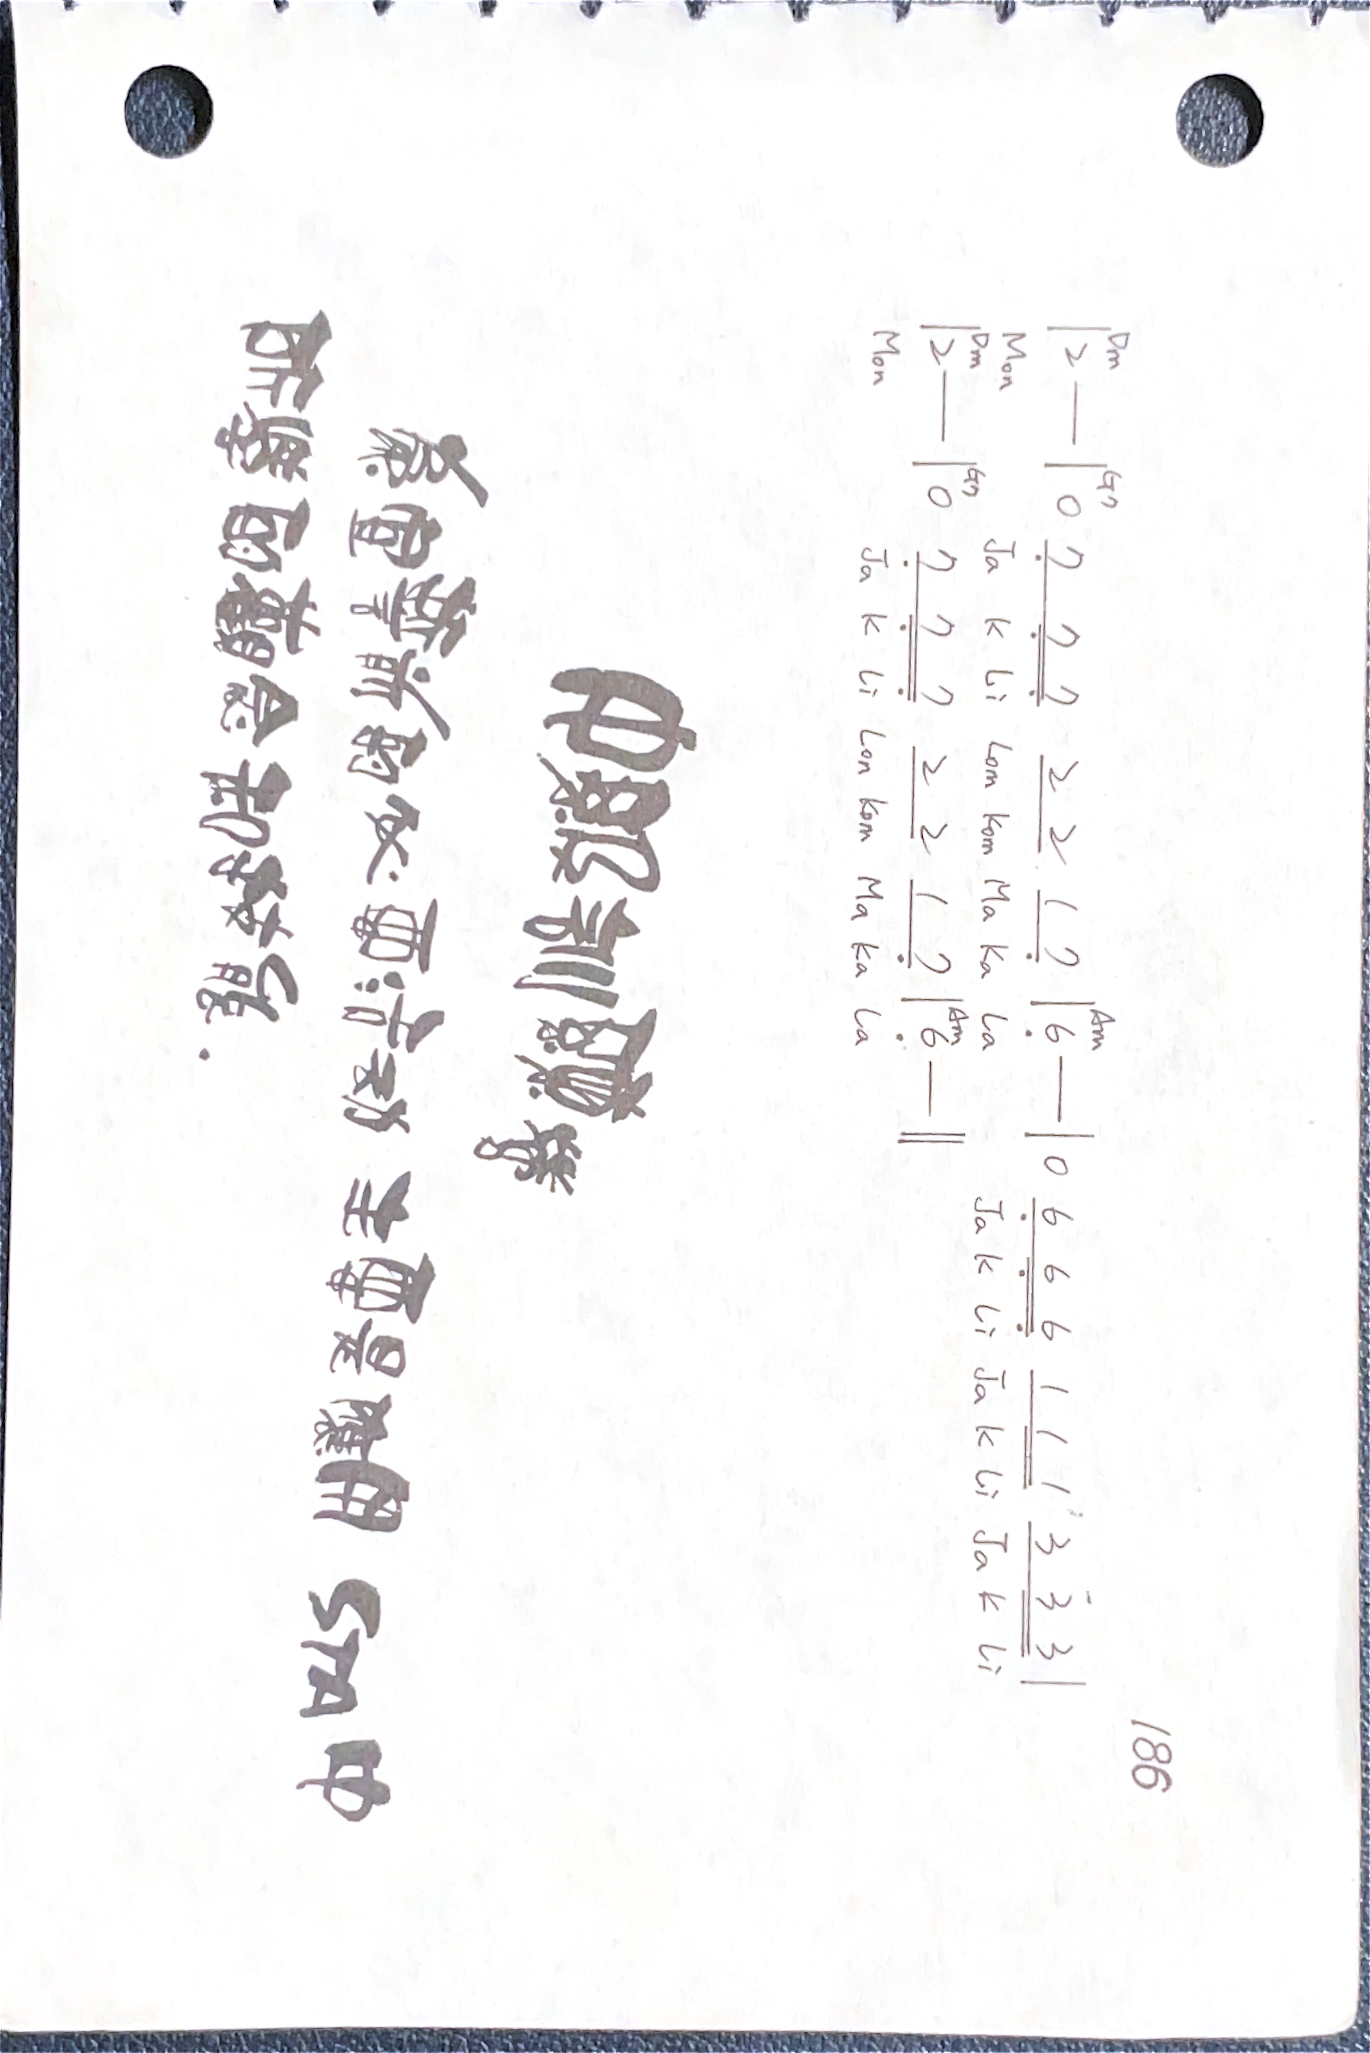 186
Dm G7 Am
|2 — |0 7 7 7 2 2 1 7 |6 — |0 6 6 6 1 1 1 3 3 3|
Mon Ja K Li Lom Kom Ma Ka La Ja K Li Ja K Li Ja K Li
Dm G7 Am
|2 — |0 7 7 7 2 2 1 7 |6 — ||
Mon Ja K Li Lon Kom Ma Ka La
中級訓練營
為宣誓前的必要活動 主要是應用 STA 中
所學的觀念和技能.